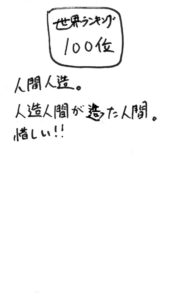 世界ランキング
100位
人間人造。
人造人間が造た人間。
惜しい!!